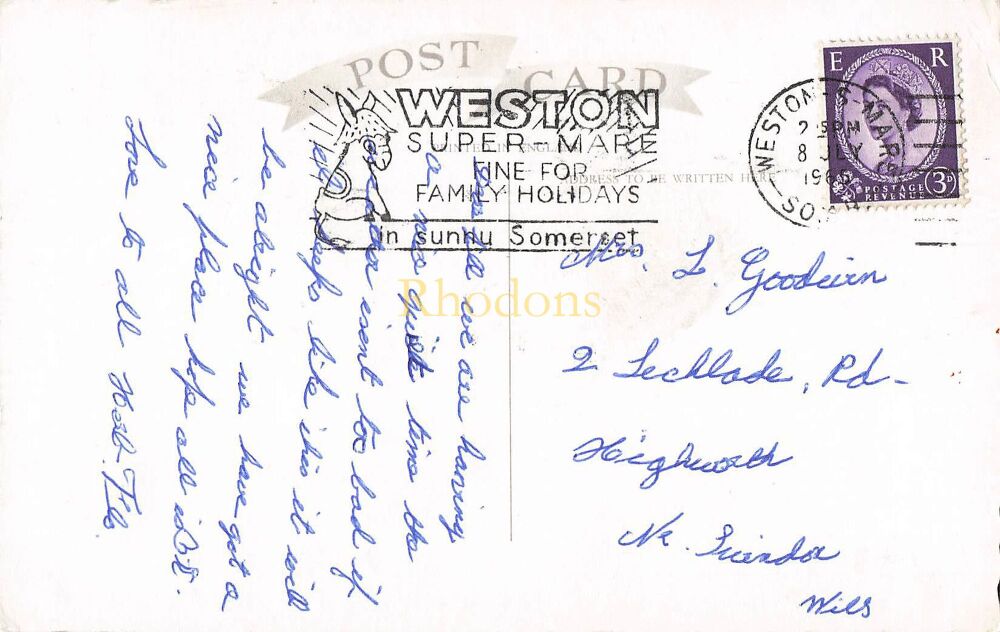 POST CARD
WESTON
SUPER-MARE
FINE FOR
FAMILY HOLIDAYS
in sunny Somerset
WESTON-S-MARE
2-15PM
8 JLY
SOM
E R
POSTAGE
REVENUE
3D
ADDRESS TO BE WRITTEN HERE
Dear all we are having
a nice quite time the
weather isent too bad if
it keeps like this it will
be alright we have got a
nice place hope all is
Love to all
Mrs. L Goodwin
2 Lechlade, Rd-
Highworth
Nr. Swindon
Wilts
Rhodons